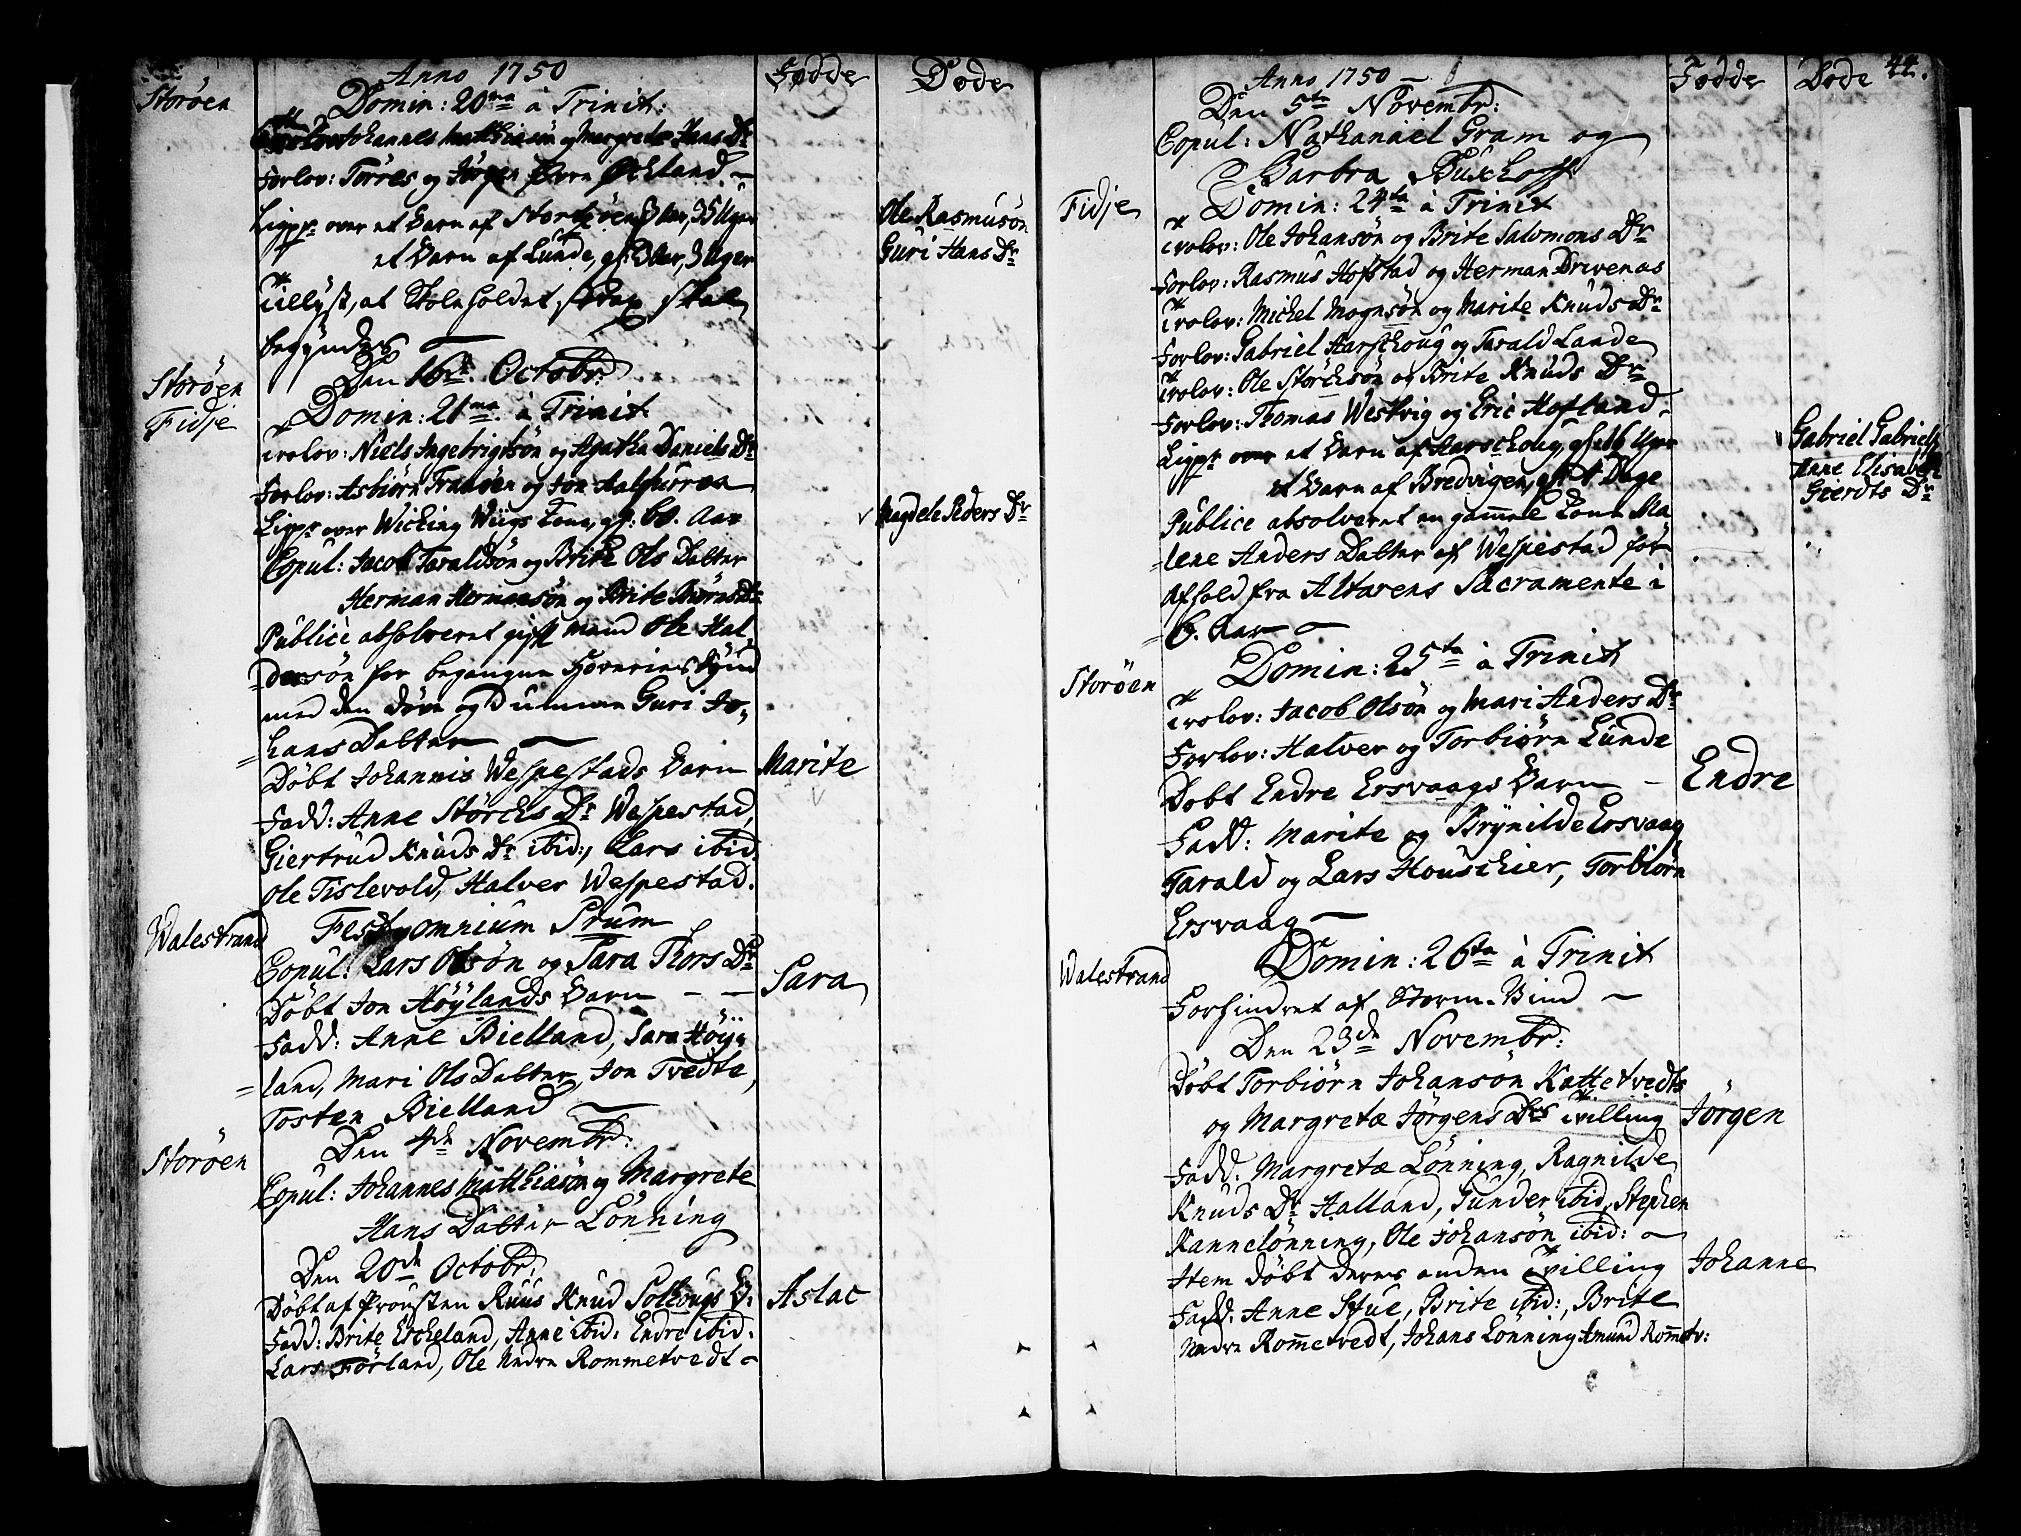 Anno 1750
Fødde
Døde
Storøen
Domin: 20ma à Trinit:
Trolov: Johannes Matthiasøn og Margrete Hans Dr
Forlov: Torres og Jörgen Øvre Økland
Ligpr over et Barn af Stordøen, 3 Aar, 35 Uger
Ole Rasmusøn
et Barn af Lunde, gl: 3 Aar, 3 Uger
Guri Hans Dr
Tillyst, at Skoleholdet strax skal
begyndes
Den 16de Octobr:
Storøen
Fidje
Domin: 21ma à Trinit
Trolov: Niels Ingebrigtsøn og Agatha Daniels Dr
Forlov: Asbiørn Tranøen og Jon
Ligpr over Wicking Wugs Kone, gl: 60. Aar
Magdele Peders Dr
Copul: Jacob Taraldsøn og Brite Ols Datter
Herman Hermansøn og Brite Biørns Dr
Publicè absolveret gift Mand Ole Hal-
dorsøn for begangne Horeries Synd
med den døve og Dumme Guri Jo-
hans Datter
Døbt Johannis Wespestads Barn
Marite
Fadd: Anne Störcks Dr Wespestad,
Giertrud Knuds Dr ibid:, Lars ibid.
Ole Tislevold, Halver Wespestad.
Walestrand
Fest omnium Srum
Copul: Lars Olsøn og Sara Thors Dr
Døbt Jon Höÿlands Barn
Sara
Fadd: Anne Bielland, Sara Höÿ-
land, Mari Ols Datter, Jon Tvedte,
Tosten Bielland
Den 4de Novembr:
Storøen
Copul: Johannes Matthiasøn og Margrete
Hans Datter Lønning
Den 20de Octobr:
Döbt af Prousten Ruus Knud Solhougs B:
Aslac
Fadd: Brite Eckeland, Anne ibid: Endre ibid:
Lars Förland, Ole Nedre Rommetvedt
Anno 1750
Fødde
Døde
44.
Den 5te Novembr:
Copul: Nathanael Gram og
Barbra Buschoff
Fidje
Domin: 24ta à Trinit
Trolov: Ole Johansøn og Brite Salomons Dr
Forlov: Rasmus Hofstad og Herman Drivenes
Trolov: Michel Mognsøn og Marite Knuds Dr
Forlov: Gabriel Aarschoug og Tarald Lande
Trolov: Ole Störcksøn og Brite Knuds Dr
Forlov: Thomas Westvig og Eric Hofland
Ligpr over et Barn af Aarschoug, gl: 16 Uger
Gabriel Gabriels
et Barn af Bredvigen, gl: Dage
Anne Elisabeth
Gierdts Dr
Publice absolveret en gammel Kone Ma-
lene Anders Datter af Wespestad for
Afhold fra Altarens Sacramente i
6. Aar
Domin: 25ta à Trinit
Storøen
Trolov: Jacob Olsøn og Mari Anders Dr
Forlov: Halver og Torbiørn Lunde
Døbt Endre Ersvaags Barn
Endre
Fadd: Marite og Brÿnilde Ersvaag
Tarald og Lars Houschier, Torbiørn
Ersvaag
Domin: 26ta à Trinit
Walestrand
Forhindret af Storm-Vind
Den 23de Novembr:
Døbt Torbiørn Johansøn Kattetvedts
og Margretæ Jörgens Drs Tvilling
Jörgen
Fadd: Margretæ Lønning, Ragnilde
Knuds Dr Halland, Gunder ibid, Stephen
Kannelønning, Ole Johansøn ibid:
Item døbt deres anden Tvilling
Johanne
Fadd: Anne Stue, Brite ibid:, Brite
Nedre Rommetvedt, Johans Lønning Amund Rommetv: